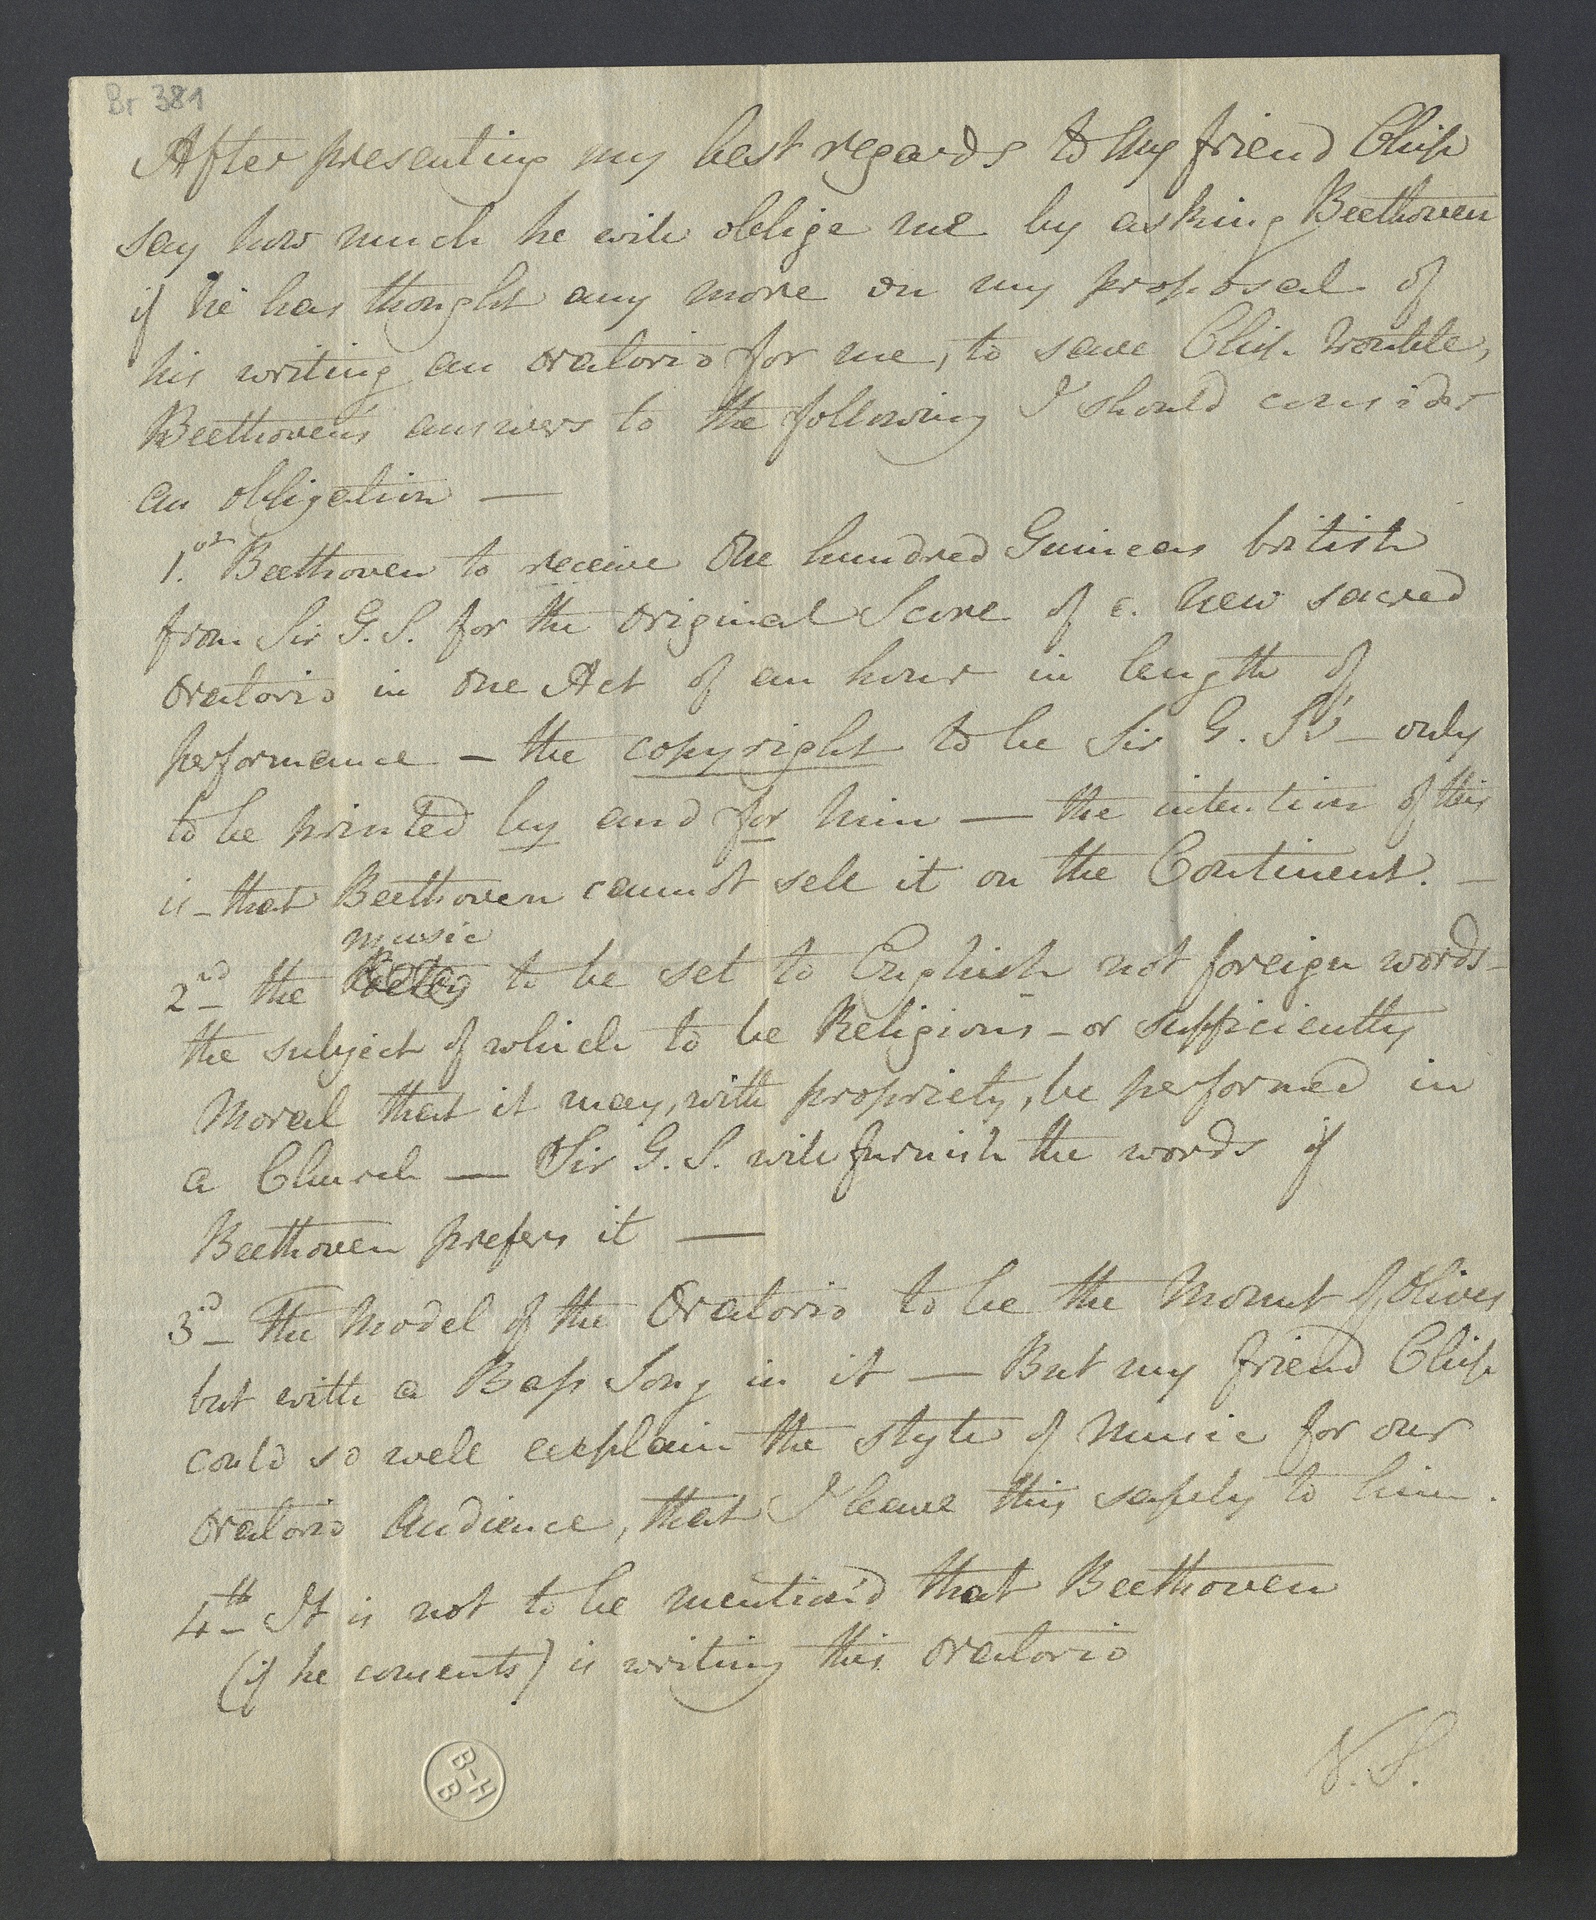 Br 381
After presenting my best regards to my friend Chip
say how much he will oblige me by asking Beethoven
if he has thought any more on my proposal of
his writing an oratorio for me, to save Chip. trouble,
Beethoven's answers to the following I should consider
an obligation —
1.st Beethoven to receive One hundred Guineas british
from Sir G. S. for the original Score of a new sacred
oratorio in one Act of an hour in length of
performance — the copyright to be Sir G. S's — only
to be printed by and for him — the intention of this
is — that Beethoven cannot sell it on the Continent. —
music
2nd — the to be set to English not foreign words —
the subject of which to be Religious — or sufficiently
Moral that it may, with propriety, be performed in
a Church — Sir G. S. will furnish the words if
Beethoven prefers it —
3d — The Model of the Oratorio to be the Mount of Olives
but with a Bass Song in it — But my friend Chip
could so well explain the style of Music for our
oratorio Audience, that I leave this safely to him.
4th — It is not to be mention'd that Beethoven
(if he consents) is writing this oratorio
B-H
B